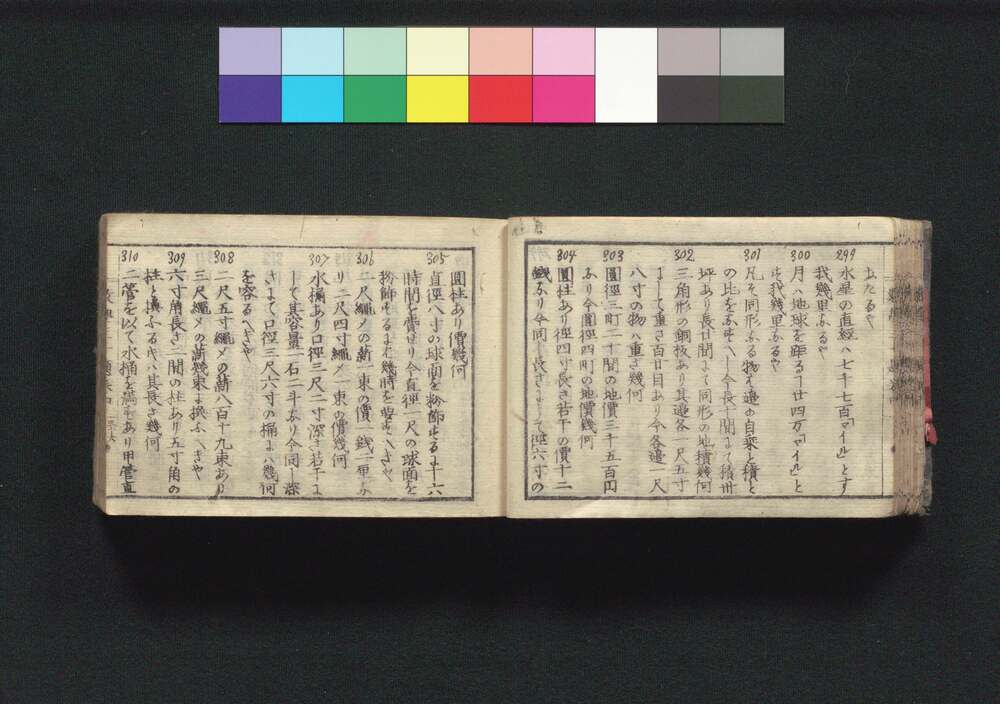 あたるや
299
水星の直経ハ七千七百「マイル」とす
我幾里なるや
300
月ハ地球を距る丁廿四万「マイル」と
す我幾里なるや
301
凡そ同形なる物ハ邊の自乗と積と
の比をなすべし今長十間にて積卅
坪あり長廿間にて同形の地積幾何
302
三角形の銅板あり其邊各一尺五寸
にして重さ百廿目あり今各邊一尺
八寸の物ハ重さ幾何
303
圓徑三町二十間の地價三千五百円
なり今圓徑四町の地價幾何
304
圓柱あり徑四寸長さ若干の價十二
錢なり今同し長さにして徑六寸の
圓柱あり價幾何
305
直徑八寸の球面を粉飾する丁十六
時間を費せり今直徑一尺の球面を
粉飾するにハ幾時を要すべきや
306
二尺繩〆の薪一束の價一錢一厘な
り二尺四寸繩〆一束の價幾何
307
水桶あり口徑三尺二寸深さ若干に
して其容量一石二斗なり今同し深
さにて口徑三尺六寸の桶にハ幾何
を容るべきや
308
二尺五寸繩〆の薪八百十九束あり
三尺繩〆の薪幾束に換ふべきや
309
六寸角長さ二間の柱あり五寸角の
柱と換ふるときハ其長さ幾何
310
二管を以て水桶を満すあり甲管直